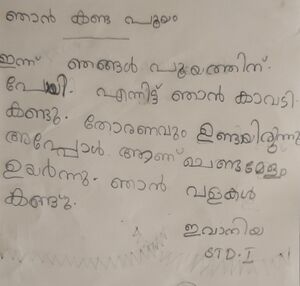 ഞാൻ കണ്ട പൂയം
ഇന്ന് ഞങ്ങൾ പൂയത്തിന്.
പോയി. എന്നിട്ട് ഞാൻ കാവടി
കണ്ടു. തോരണവും ഉണ്ടായിരുന്നു
അപ്പോൾ ആണ് ചെണ്ടമേളം
ഉയർന്നു. ഞാൻ വളകൾ
കണ്ടു.
ഇവാനിയ
STD. I